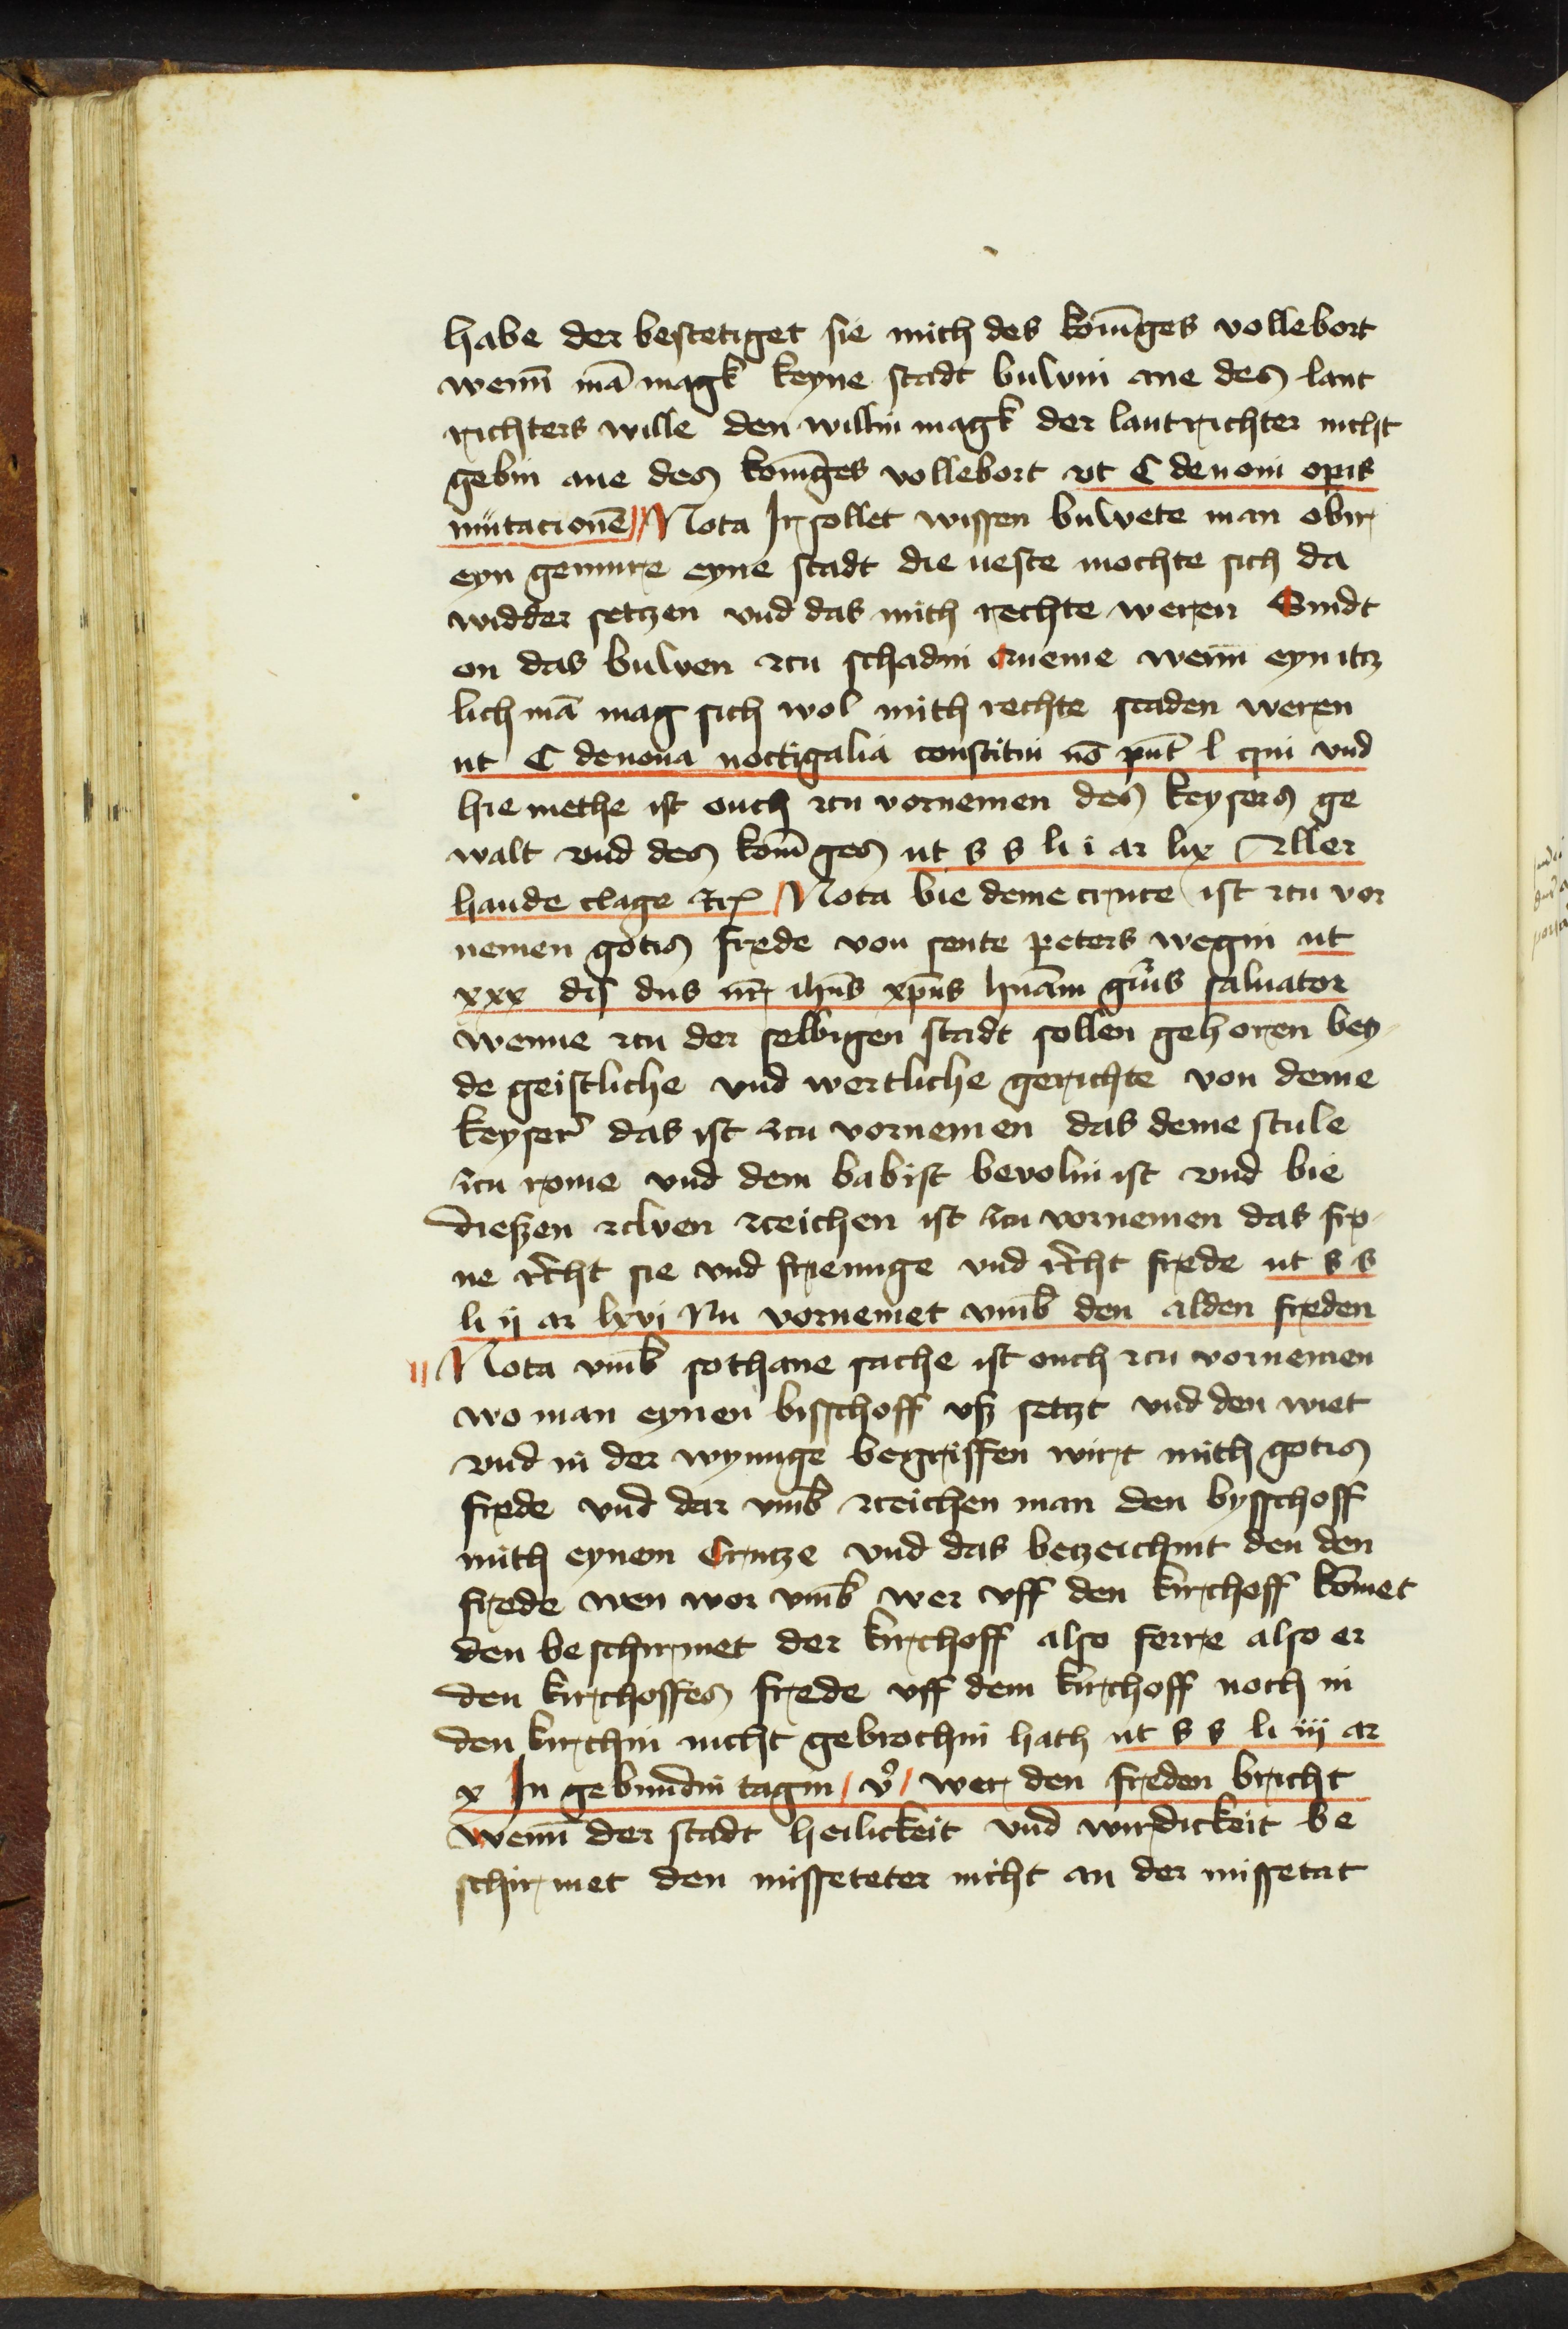 habe der bestetiget sie mith des koniges vollebort
wenn mā magk keyne stadt buwin ane des lant
richters wille den willin magk der lantrichter nicht
gebin ane des koniges vollebort ut C de noui opis
mutacionē Nota Ir sollet wissen buwete man obir
eyn gemure eyne stadt die ueste mochte sich da
widder setzen vnd das mith rechte weren Sindt
on das buwen zcu schadin queme wenn eyn itz
lich mā mag sich wol mith rechte scaden weren
ut C de noua uectigalia constitui nō pnt l qui vnd
hie methe ist ouch zcu vornemen des keysers ge
walt vnd des koniges ut s s li i ar lix Aller
hande clage zc Nota bie deme cruce ist zcu vor
nemen gotis frede von sente peters wegin ut
xxx dis dns nr ihus xpus huām gnis saluator
wenne zcu der selbigen stadt sollen gehoren bey
de geistliche vnd wertliche gerichte von deme
keyser das ist zcu vornemen das deme stule
zcu rome vnd dem babist bevolin ist vnd bie
dieszen zcwen zceichen ist zcu vornemen das fro
ne recht sie vnd frienige vnd recht frede ut s s
li ij ar lxvi Nu vornemet vmb den alden freden
Nota vmb sothane sache ist ouch zcu vornemen
wo man eynen bisschoff vsz setzt vnd den wiet
vnd in der wyunge begriffen wirt mith gotis
frede vnd dar vmb zceichen man den bysschoff
mith eynem Crutze vnd das bezeichint den den
frede wen wor vmb wer vff den kirchoff komet
den beschirmet der kirchoff also ferre also er
den kirchoffes frede vff dem kirchoff noch in
den kirchin nicht gebrochin hath ut s s li iij ar
x In gebundin tagin vͦ wer den freden bricht
wenn der stadt heilickeit vnd wirdickeit be
schirmet den misseteter nicht an der missetat